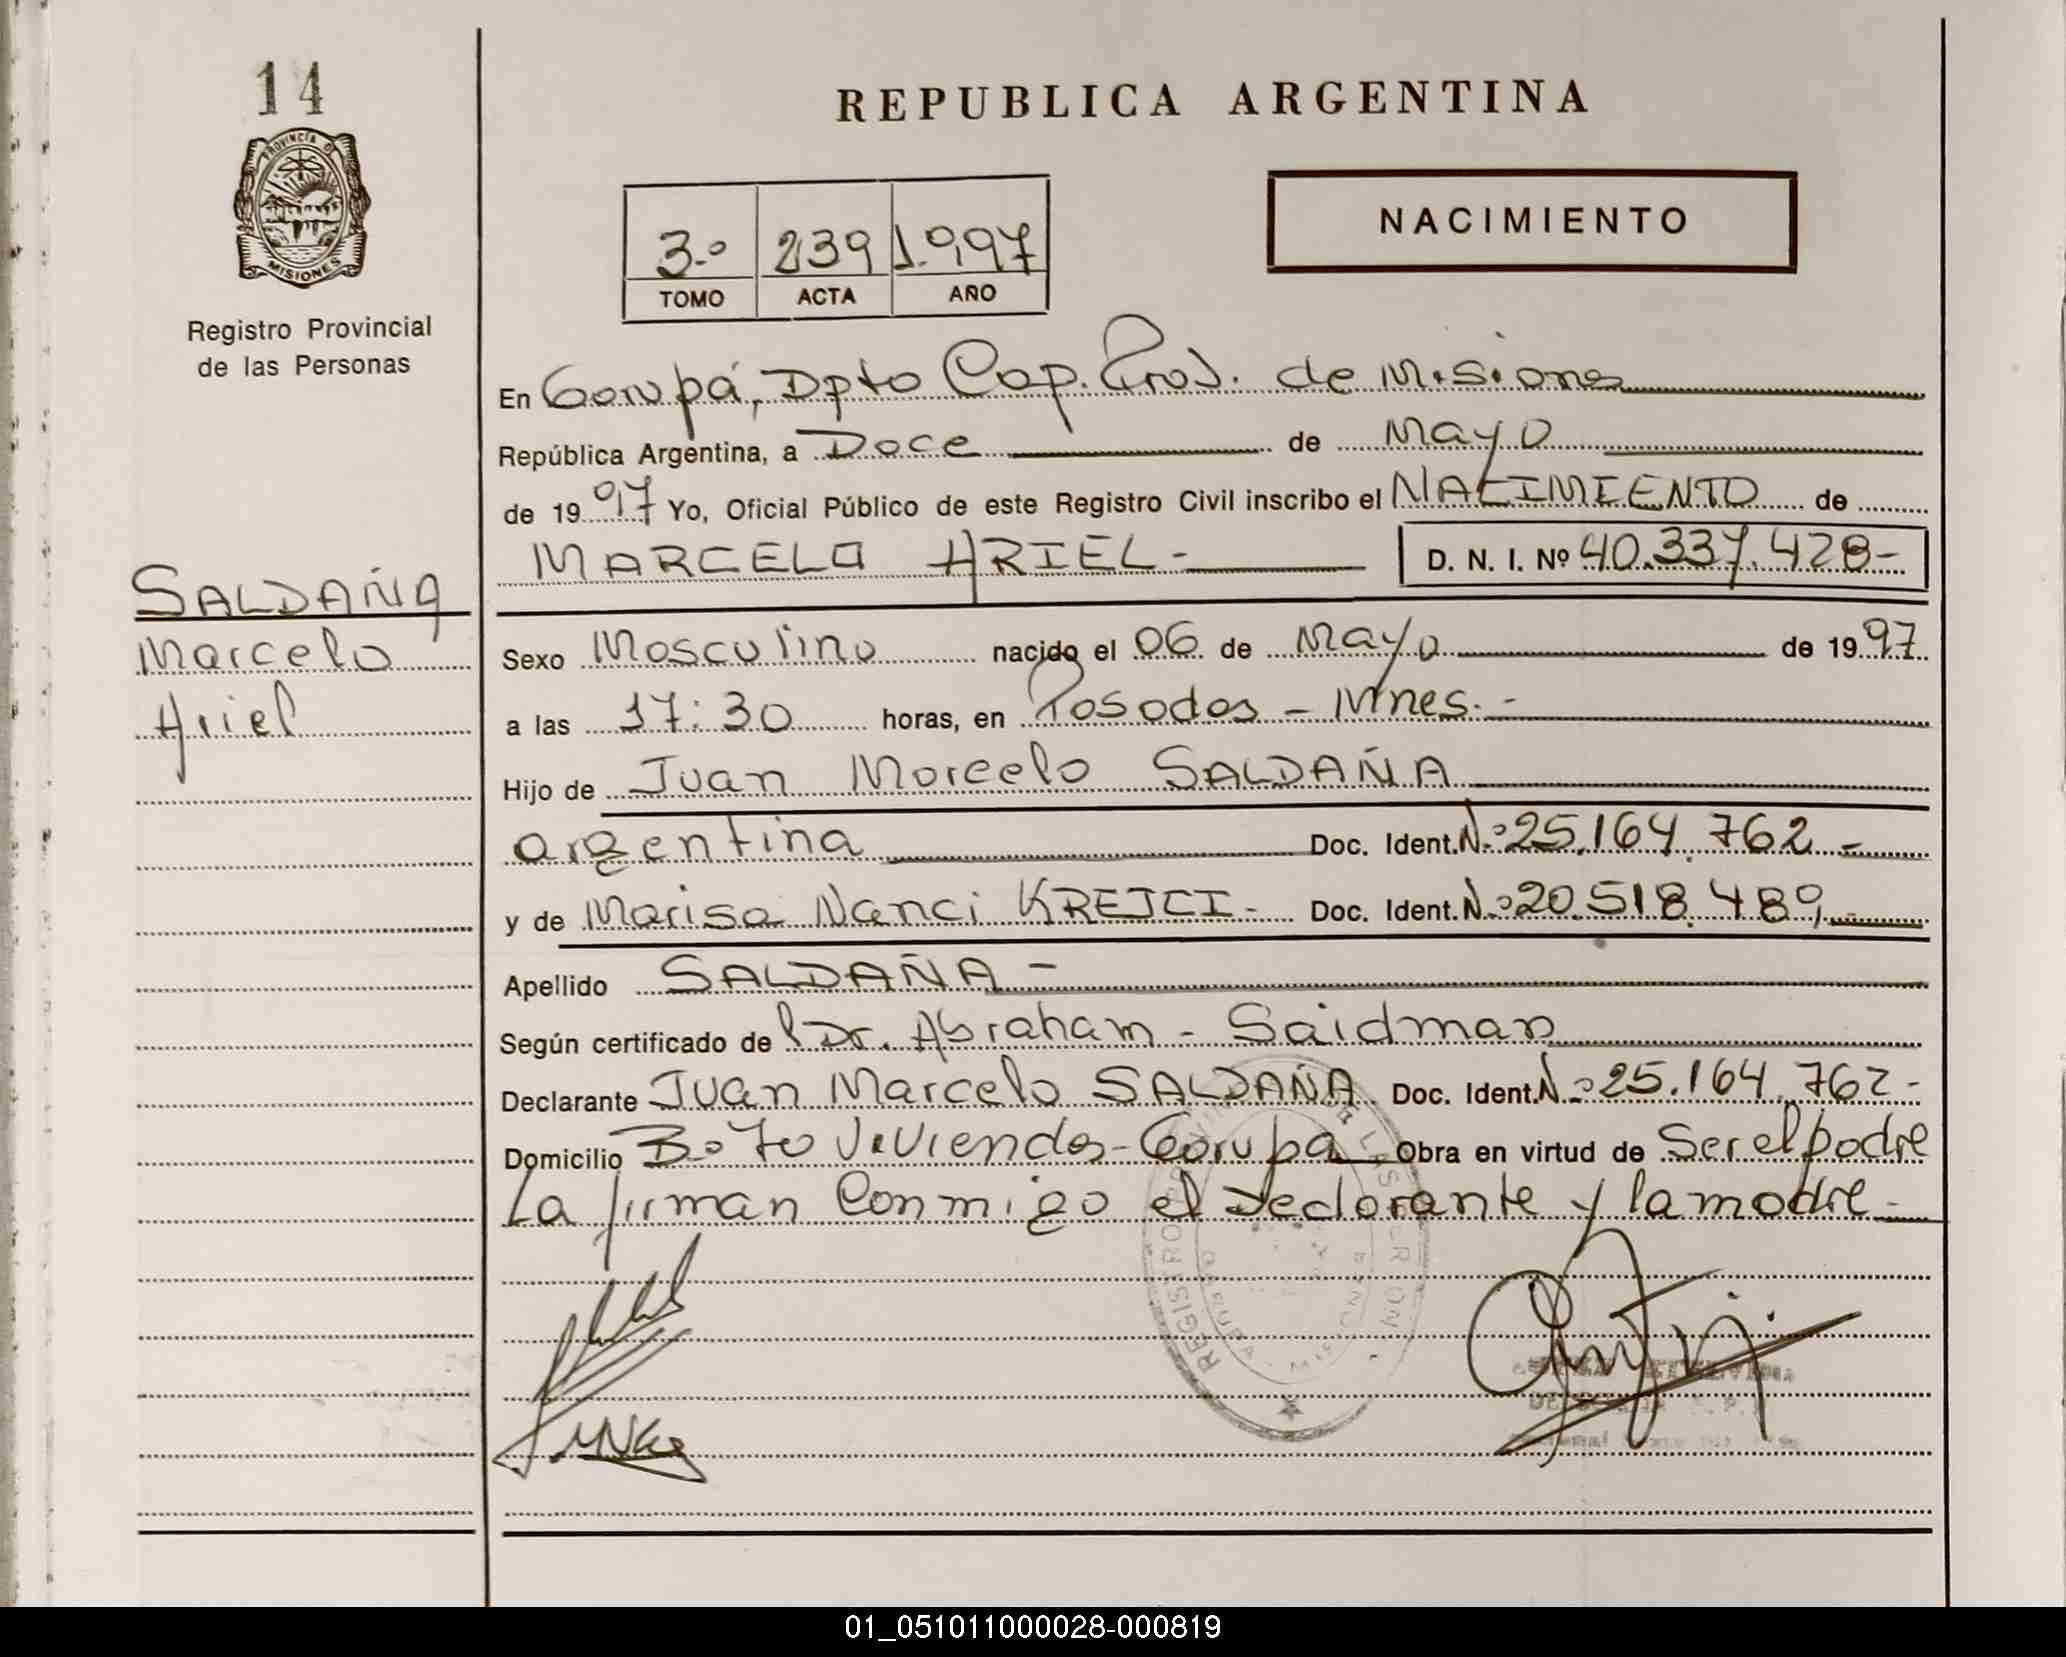 14
PROVINCIA D
MISIONES
Registro Provincial
de las Personas
SALDAÑA
Marcelo
Ariel
REPUBLICA ARGENTINA
3.º 239 1.997
TOMO ACTA AÑO
NACIMIENTO
En Garupá, Dpto Cap. Prov. de Misiones
República Argentina, a Doce de Mayo
de 1997 Yo, Oficial Público de este Registro Civil inscribo el NACIMIENTO de
MARCELO ARIEL - D. N. I. Nº 40.337.428-
Sexo Masculino nacido el 06 de Mayo de 1997
a las 17:30 horas, en Posadas - Mnes. -
Hijo de Juan Marcelo SALDAÑA
argentina Doc. Ident. N.º 25.164.762 -
y de Marisa Nanci KREJCI - Doc. Ident. N.º 20.518.489, -
Apellido SALDAÑA -
Según certificado de Dr. Abraham - Saidman
Declarante Juan Marcelo SALDAÑA Doc. Ident. N.º 25.164.762 -
Domicilio B.º 70 Viviendas - Garupá Obra en virtud de Ser el padre
La firman Conmigo el Declarante y la madre -
REGISTRO LAS
01_051011000028-000819